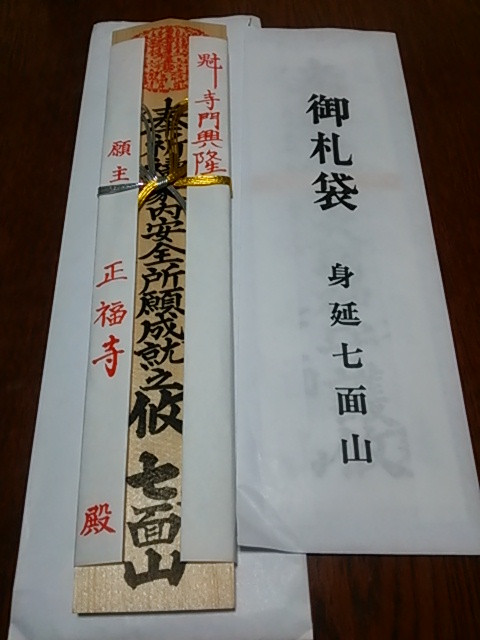 御札袋
身延七面山
寺門興隆
奉祈 家内安全所願成就之攸 七面山
願主 正福寺 殿